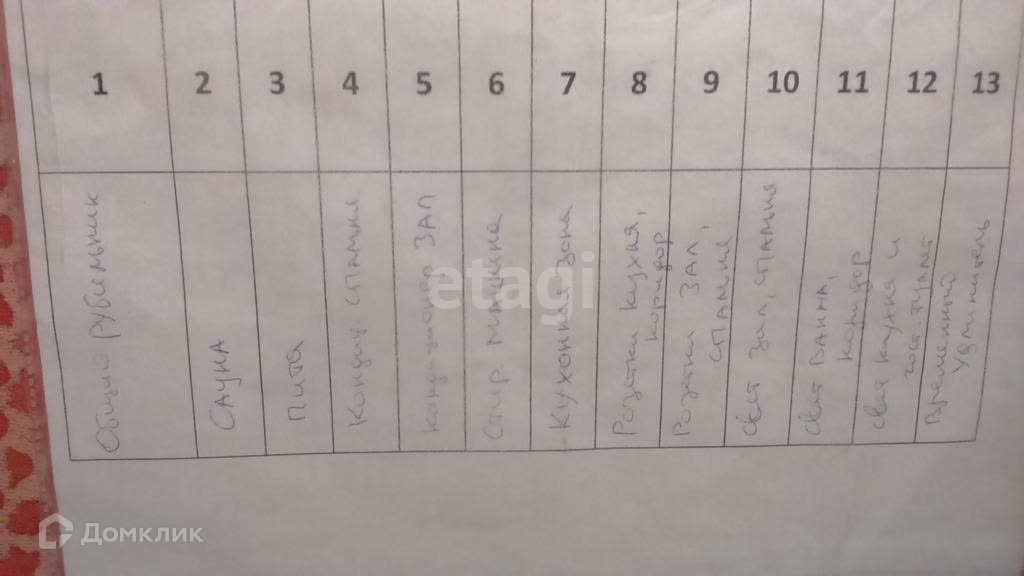 1 2 3 4 5 6 7 8 9 10 11 12 13
Общий рубильник
Сауна
Плита
Кондиц спальня
Кондиционер ЗАЛ
Стир машина
Кухонная зона
Розетки кухня,
коридор
Розетки ЗАЛ,
спальня
Свет Зал, спальня
Свет Ванна,
коридор
Свет кухня и
гост туалет
Временный
удлинитель
etagi
Домклик